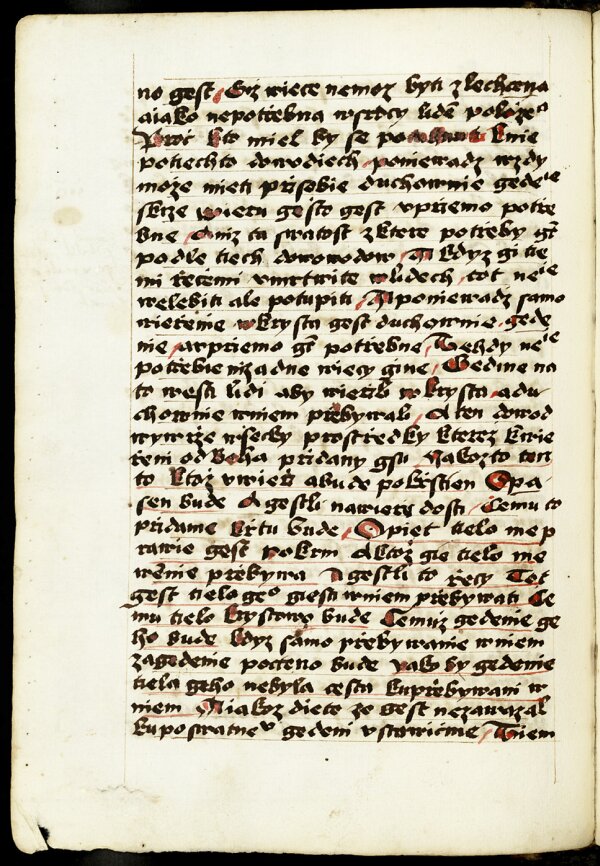 no gest / Giz wiece nemoz byti zlechcena
a iako nepotrzebna w srdcy lidem polożena
Proc kto miel by se pohnuti k nie
po tiechto dowodiech poniewadz wzdy
može mieti przi sobie duchownie gedenie
skrze wieru gesto gest vpriemo potrze
bne A niz ta swatost z ktere potrzeby gest
podle tiech dowodow A kdyz gi tie
mi rzeczmi vmrtwite w lidech tot nenie
welebiti ale potupiti A poniewadz samo
wierzenie w krysta gest duchownie gede
nie / a vpriemo gest potrzebne / Tehdy nenie
potrzebie nizadne wiecy gine / Gedine na
to westi lidi aby wierzili w krysta / a du
chownie w niem przebywali / A ten dowod
wywrze wsecky prostrzedky kterez k wie
rzeni od boha pridany gsu yakozto ton
to ktoz vwierzi a bude pokrztien Spa
sen bude A gestli na wierze dosti / Cemuto
pridame krztu bude / Opiet tielo me p
rawie gest pokrm A ktoz gie tielo me
we mnie przebywa A gestli to rzecy Tot
gest tielo geho giesti w niem przebywati Ce
mu tielo krystowo bude Cemuz gedenie ge
ho bude kdyz samo przebywanie w niem
za gedenie pocteno bude yako by gedenie
tiela geho nebyla cesta k przebywani w
niem A iakoz diete ze gest nezawazal
ku poswatnemu gedeni vstawicnie / Tiem